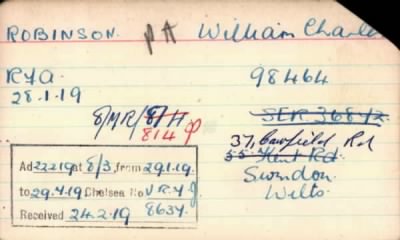 ROBINSON. William Charles
RFA. 98464
28.1.19
8/MR/8/H. SER 368/12
814
37, Cawfield Rd
55 Kent Rd.
Swindon
Wilts.
Ad 22219 at 8/3, from 29.1.19.
to 29.4.19 Chelsea No
Received 24.2.19 8634.